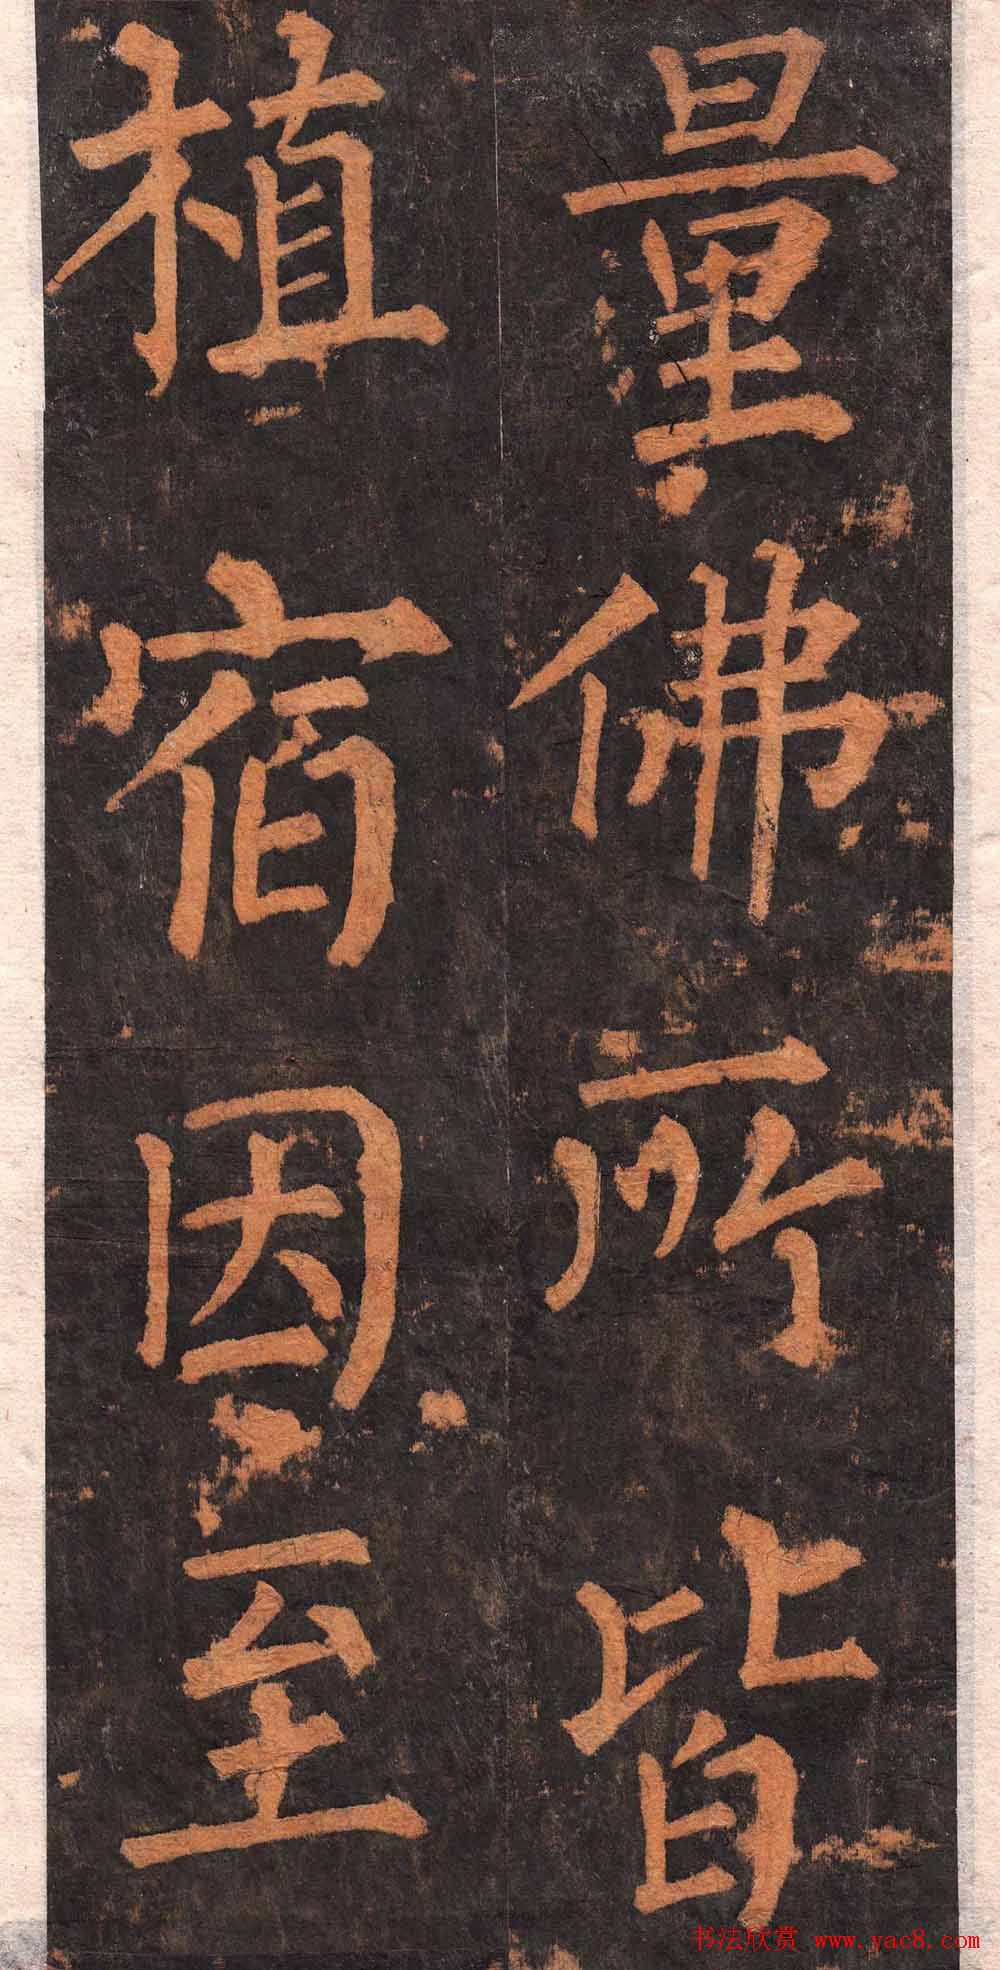 量佛所皆
植宿因至
书法欣赏 www.yac8.com